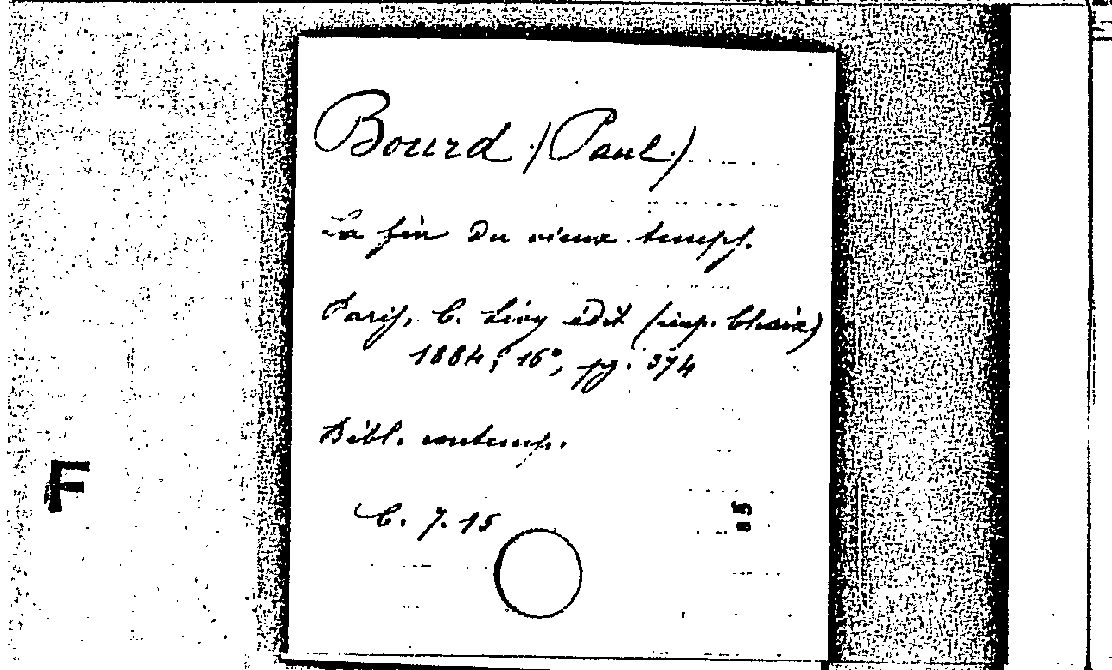 Bourd (Paul)
La fin du vieux temps.
Paris, C. Lévy édit (imp. Chaix)
1884; 16°, pg. 374
Bibl. contemp.
F
C. 7. 15
85